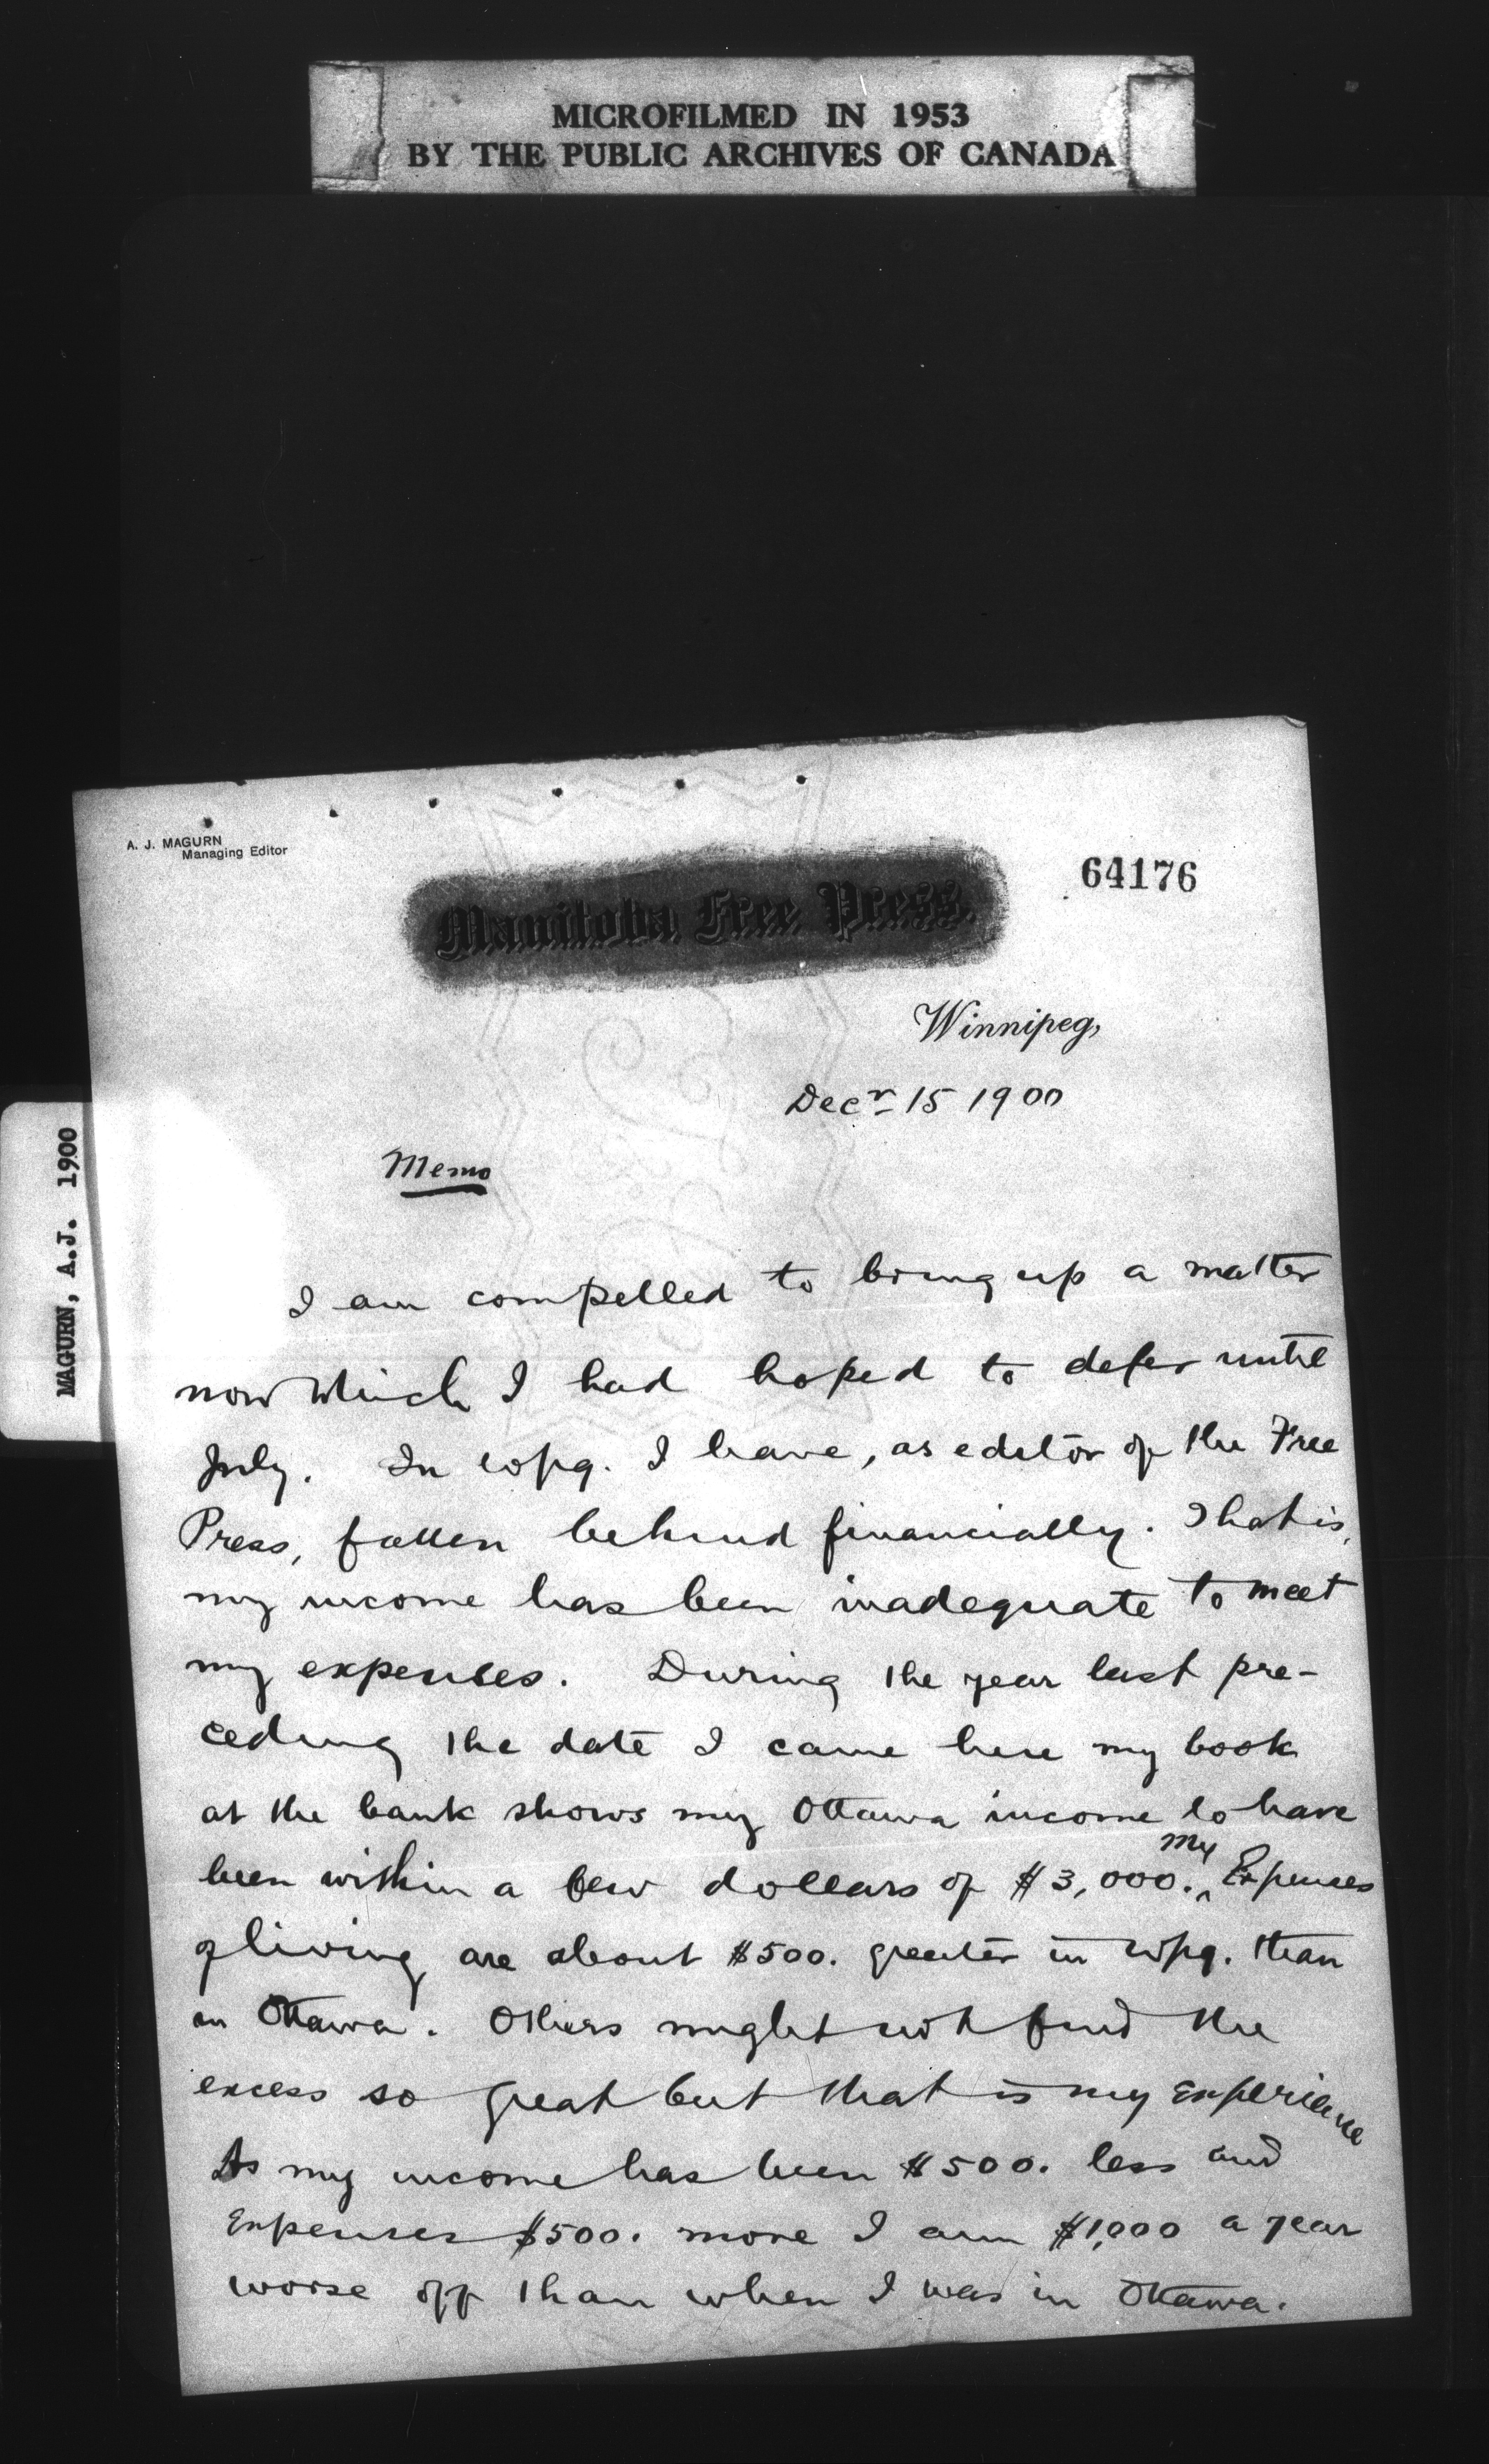 MICROFILMED IN 1953
BY THE PUBLIC ARCHIVES OF CANADA
A. J. MAGURN
Managing Editor
Manitoba Free Press.
64176
Winnipeg,
Decr 15 1900
MAGURN, A.J. 1900
Memo
I am compelled to bring up a matter
now which I had hoped to defer until
July. In Wpg. I have, as editor of the Free
Press, fallen behind financially. That is,
my income has been inadequate to meet
my expenses. During the year last pre-
ceding the date I came here my book
at the bank shows my Ottawa income to have
been within a few dollars of $3,000. My Expenses
of living are about $500. greater in Wpg. than
in Ottawa. Others might not find the
excess so great but that is my experience
As my income has been $500. less and
Expenses $500. more I am $1,000 a year
worse off than when I was in Ottawa.